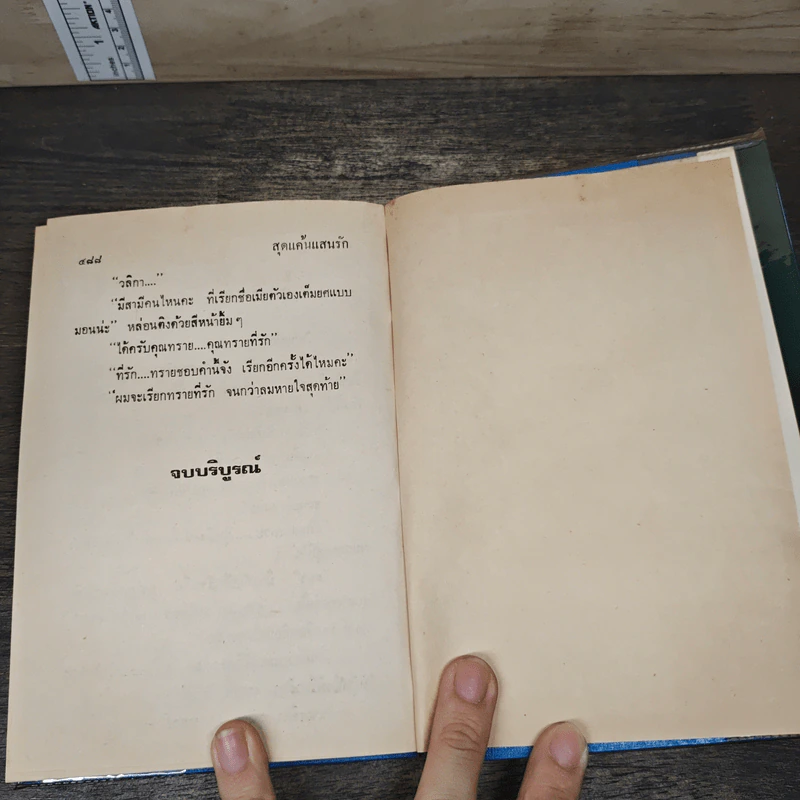 ๔๘๘
สุดแค้นแสนรัก
“วลิกา....”
“มีสามีคนไหนคะ ที่เรียกชื่อเมียตัวเองเต็มยศแบบ
มอนน่ะ” หล่อนติงด้วยสีหน้ายิ้มๆ
“ได้ครับคุณทราย....คุณทรายที่รัก”
“ที่รัก....ทรายชอบคำนี้จัง เรียกอีกครั้งได้ไหมคะ”
“ผมจะเรียกทรายที่รัก จนกว่าลมหายใจสุดท้าย”
จบบริบูรณ์